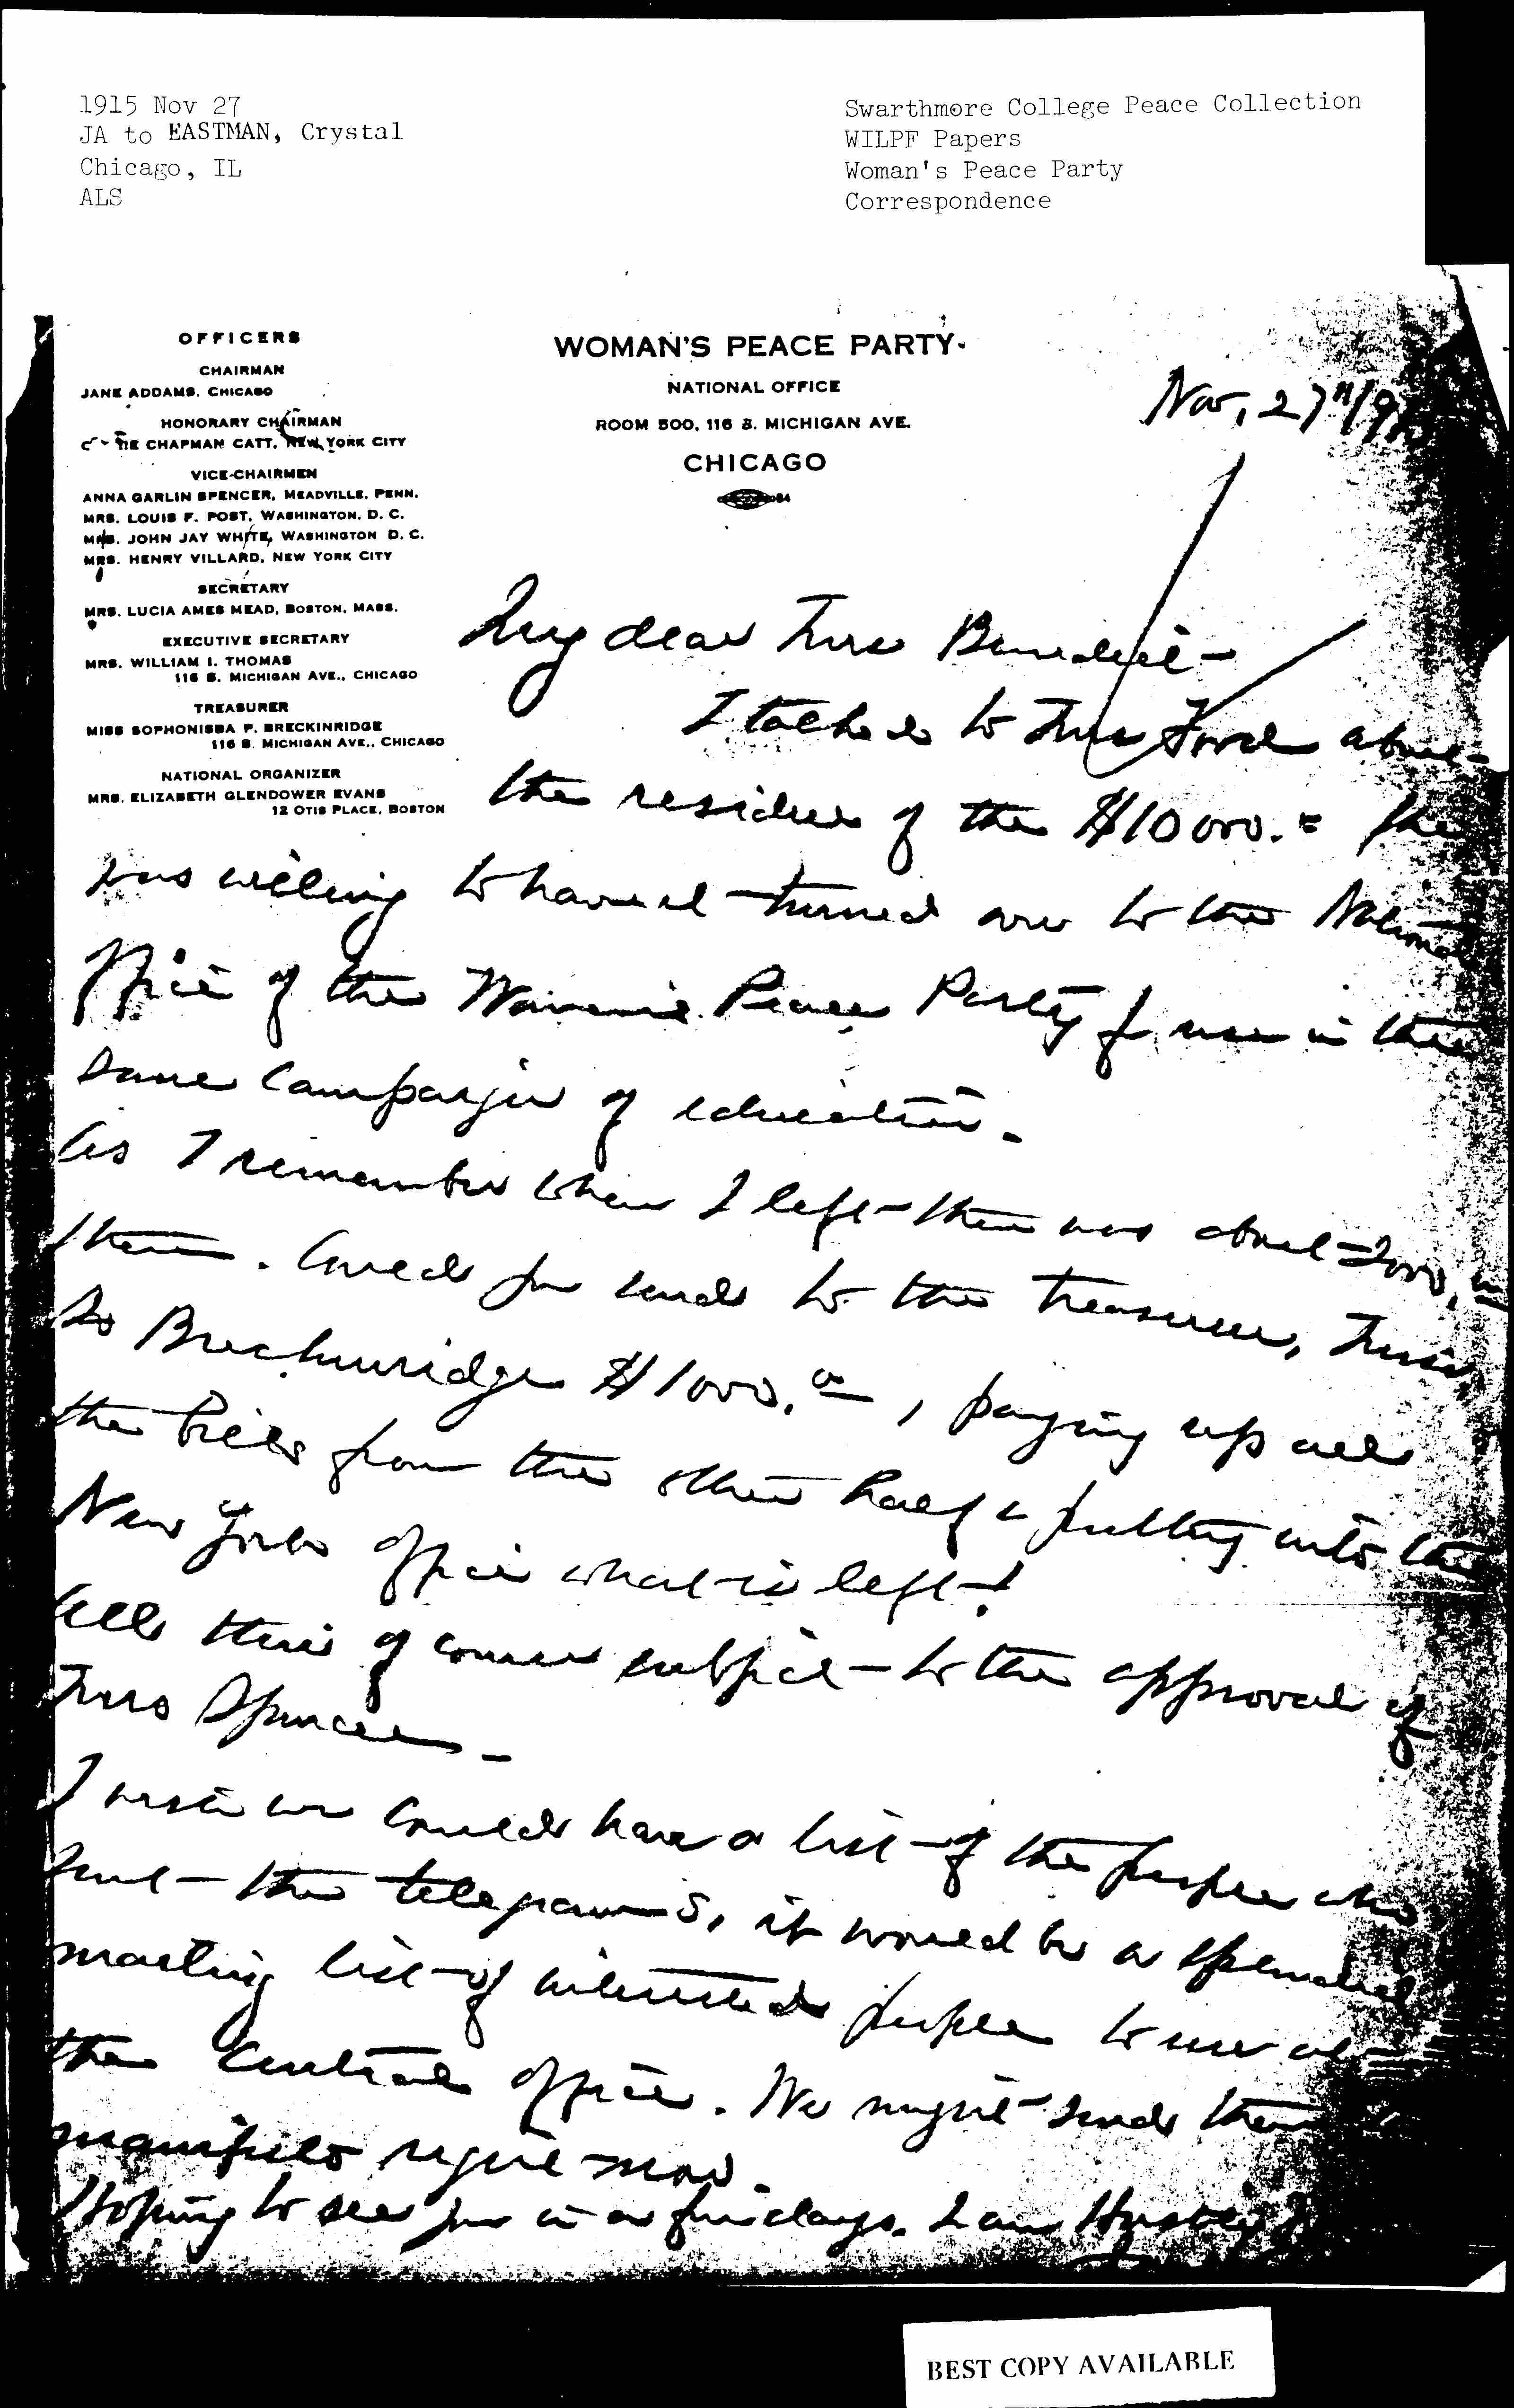 1915 Nov 27
JA to EASTMAN, Crystal
Chicago, IL
ALS
Swarthmore College Peace Collection
WILPF Papers
Woman's Peace Party
Correspondence
OFFICERS
CHAIRMAN
JANE ADDAMS, CHICAGO
HONORARY CHAIRMAN
CHAPMAN CATT, NEW YORK CITY
VICE-CHAIRMEN
ANNA GARLIN SPENCER, MEADVILLE, PENN.
MRS. LOUIS F. POST, WASHINGTON, D. C.
MRS. JOHN JAY WHITE, WASHINGTON D. C.
MRS. HENRY VILLARD, NEW YORK CITY
SECRETARY
MRS. LUCIA AMES MEAD, BOSTON, MASS.
EXECUTIVE SECRETARY
MRS. WILLIAM I. THOMAS
116 S. MICHIGAN AVE., CHICAGO
TREASURER
MISS SOPHONISBA P. BRECKINRIDGE
116 S. MICHIGAN AVE., CHICAGO
NATIONAL ORGANIZER
MRS. ELIZABETH GLENDOWER EVANS
12 OTIS PLACE, BOSTON
WOMAN'S PEACE PARTY
NATIONAL OFFICE
ROOM 500, 116 S. MICHIGAN AVE.
CHICAGO
Nov, 27"
My dear Mrs Benedict -
I talked to Mrs Ford about
the residue of the $10000.= She
was willing to have it turned over to the National
Office of the Woman's Peace Party for use in the
same campaign of education.
As I remember when I left there was about 2000,
there. Could you send to the treasurer, Miss
Breckinridge $1000.00, paying up all
the bills from the other half & putting into the
New York office what is left!
All this of course subject to the approval of
Mrs Spencer -
I wish we could have a list of the people who
sent the telegrams, it would be a splendid
mailing list of interested people to use at
the central office. We might send them
manifesto right now.
Hoping to see you in a few days. I am Hastily
BEST COPY AVAILABLE